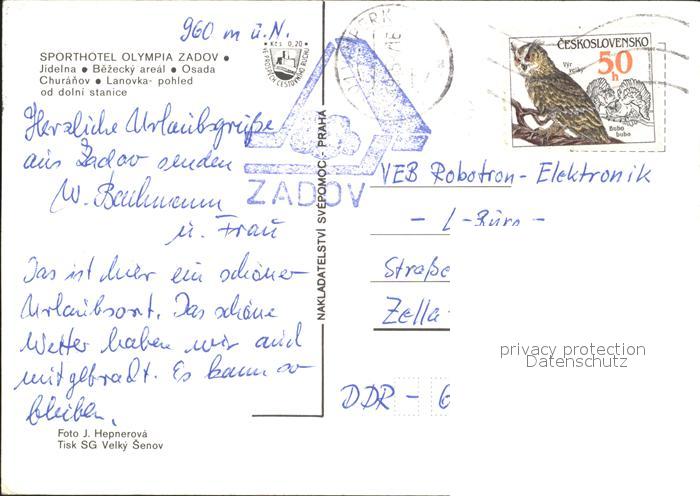 960 m ü.N.
SPORTHOTEL OLYMPIA ZADOV ●
Jídelna ● Běžecký areál ● Osada
Churáňov ● Lanovka- pohled
od dolní stanice
Kčs 0,20
Herzliche Urlaubsgrüße
aus Zadov senden
W. Bachmann
u. Frau
Das ist hier ein schöner
Urlaubsort. Das schöne
Wetter haben wir auch
mitgebracht. Es kann so
bleiben.
Foto J. Hepnerová
Tisk SG Velký Šenov
NAKLADATELSTVÍ SVÉPOMOC - PRAHA
ZADOV
ČESKOSLOVENSKO
50h
Výr velký
Bubo bubo
VEB Robotron- Elektronik
- L-Büro -
Straße
Zella-
DDR - 6
privacy protection
Datenschutz